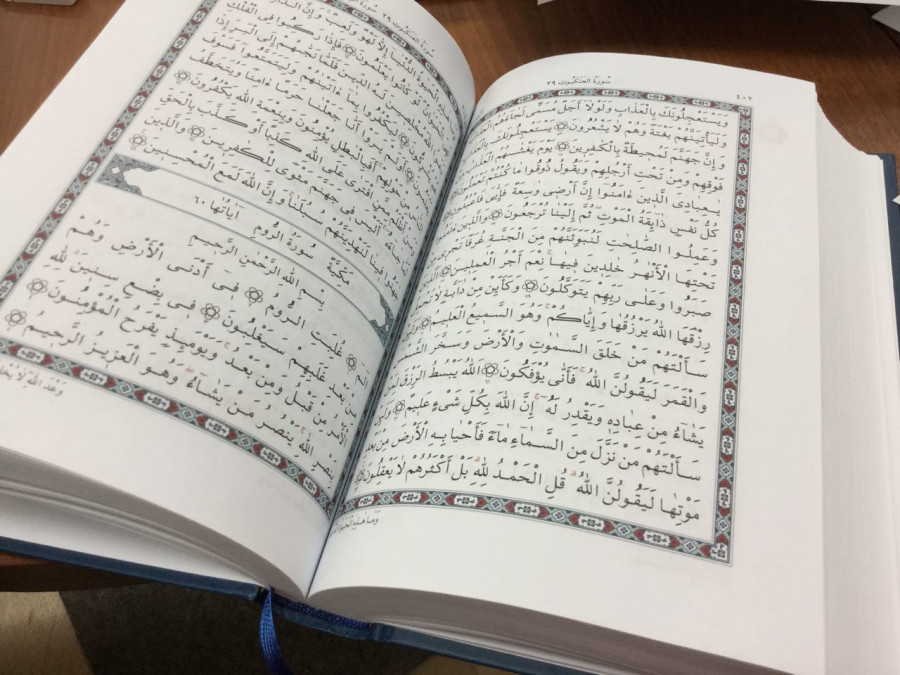 ٤٠٢ سُورَةُ الْعَنكَبُوتِ ٢٩
وَيَسْتَعْجِلُونَكَ بِالْعَذَابِ وَلَوْلَا أَجَلٌ مُسَمًّى لَجَاءَهُمُ
وَلَيَأْتِيَنَّهُمْ بَغْتَةً وَهُمْ لَا يَشْعُرُونَ يَسْتَعْجِلُونَكَ
وَإِنَّ جَهَنَّمَ لَمُحِيطَةٌ بِالْكَٰفِرِينَ يَوْمَ يَغْشَىٰهُمُ الْعَذَابُ
فَوْقِهِمْ وَمِنْ تَحْتِ أَرْجُلِهِمْ وَيَقُولُ ذُوقُوا مَا كُنْتُمْ تَعْمَلُونَ
يَٰعِبَادِيَ الَّذِينَ ءَامَنُوا إِنَّ أَرْضِي وَٰسِعَةٌ فَإِيَّٰيَ فَاعْبُدُونِ
كُلُّ نَفْسٍ ذَائِقَةُ الْمَوْتِ ثُمَّ إِلَيْنَا تُرْجَعُونَ وَالَّذِينَ
وَعَمِلُوا الصَّٰلِحَٰتِ لَنُبَوِّئَنَّهُمْ مِنَ الْجَنَّةِ غُرَفًا تَجْرِي
تَحْتِهَا الْأَنْهَٰرُ خَٰلِدِينَ فِيهَا نِعْمَ أَجْرُ الْعَٰمِلِينَ
صَبَرُوا وَعَلَىٰ رَبِّهِمْ يَتَوَكَّلُونَ وَكَأَيِّنْ مِنْ دَابَّةٍ لَا
رِزْقَهَا اللَّهُ يَرْزُقُهَا وَإِيَّاكُمْ وَهُوَ السَّمِيعُ الْعَلِيمُ
سَأَلْتَهُمْ مَنْ خَلَقَ السَّمَٰوَٰتِ وَالْأَرْضَ وَسَخَّرَ الشَّمْسَ
وَالْقَمَرَ لَيَقُولُنَّ اللَّهُ فَأَنَّىٰ يُؤْفَكُونَ اللَّهُ يَبْسُطُ الرِّزْقَ
يَشَاءُ مِنْ عِبَادِهِ وَيَقْدِرُ لَهُ إِنَّ اللَّهَ بِكُلِّ شَيْءٍ عَلِيمٌ وَلَئِنْ
سَأَلْتَهُمْ مَنْ نَزَّلَ مِنَ السَّمَاءِ مَاءً فَأَحْيَا بِهِ الْأَرْضَ مِنْ بَعْدِ
مَوْتِهَا لَيَقُولُنَّ اللَّهُ قُلِ الْحَمْدُ لِلَّهِ بَلْ أَكْثَرُهُمْ لَا يَعْقِلُونَ
وَمَا هَٰذِهِ
سُورَةُ الْعَنْكَبُوتِ ٢٩ سُورَةُ
الدُّنْيَا إِلَّا لَهْوٌ وَلَعِبٌ وَإِنَّ الدَّارَ
لَوْ كَانُوا يَعْلَمُونَ فَإِذَا رَكِبُوا فِي الْفُلْكِ
لَهُ الدِّينَ فَلَمَّا نَجَّىٰهُمْ إِلَى الْبَرِّ إِذَا
لِيَكْفُرُوا بِمَا ءَاتَيْنَٰهُمْ وَلِيَتَمَتَّعُوا فَسَوْفَ
أَوَلَمْ يَرَوْا أَنَّا جَعَلْنَا حَرَمًا ءَامِنًا وَيُتَخَطَّفُ
حَوْلِهِمْ أَفَبِالْبَٰطِلِ يُؤْمِنُونَ وَبِنِعْمَةِ اللَّهِ يَكْفُرُونَ
أَظْلَمُ مِمَّنِ افْتَرَىٰ عَلَى اللَّهِ كَذِبًا أَوْ كَذَّبَ بِالْحَقِّ
أَلَيْسَ فِي جَهَنَّمَ مَثْوًى لِلْكَٰفِرِينَ وَالَّذِينَ
فِينَا لَنَهْدِيَنَّهُمْ سُبُلَنَا وَإِنَّ اللَّهَ لَمَعَ الْمُحْسِنِينَ
مَكِّيَّةٌ سُورَةُ الرُّومِ آيَاتُهَا ٦٠
بِسْمِ اللَّهِ الرَّحْمَٰنِ الرَّحِيمِ
غُلِبَتِ الرُّومُ فِي أَدْنَى الْأَرْضِ وَهُمْ
مِنْ بَعْدِ غَلَبِهِمْ سَيَغْلِبُونَ فِي بِضْعِ سِنِينَ لِلَّهِ
الْأَمْرُ مِنْ قَبْلُ وَمِنْ بَعْدُ وَيَوْمَئِذٍ يَفْرَحُ الْمُؤْمِنُونَ
بِنَصْرِ اللَّهِ يَنْصُرُ مَنْ يَشَاءُ وَهُوَ الْعَزِيزُ الرَّحِيمُ
وَعْدَ اللَّهِ لَا